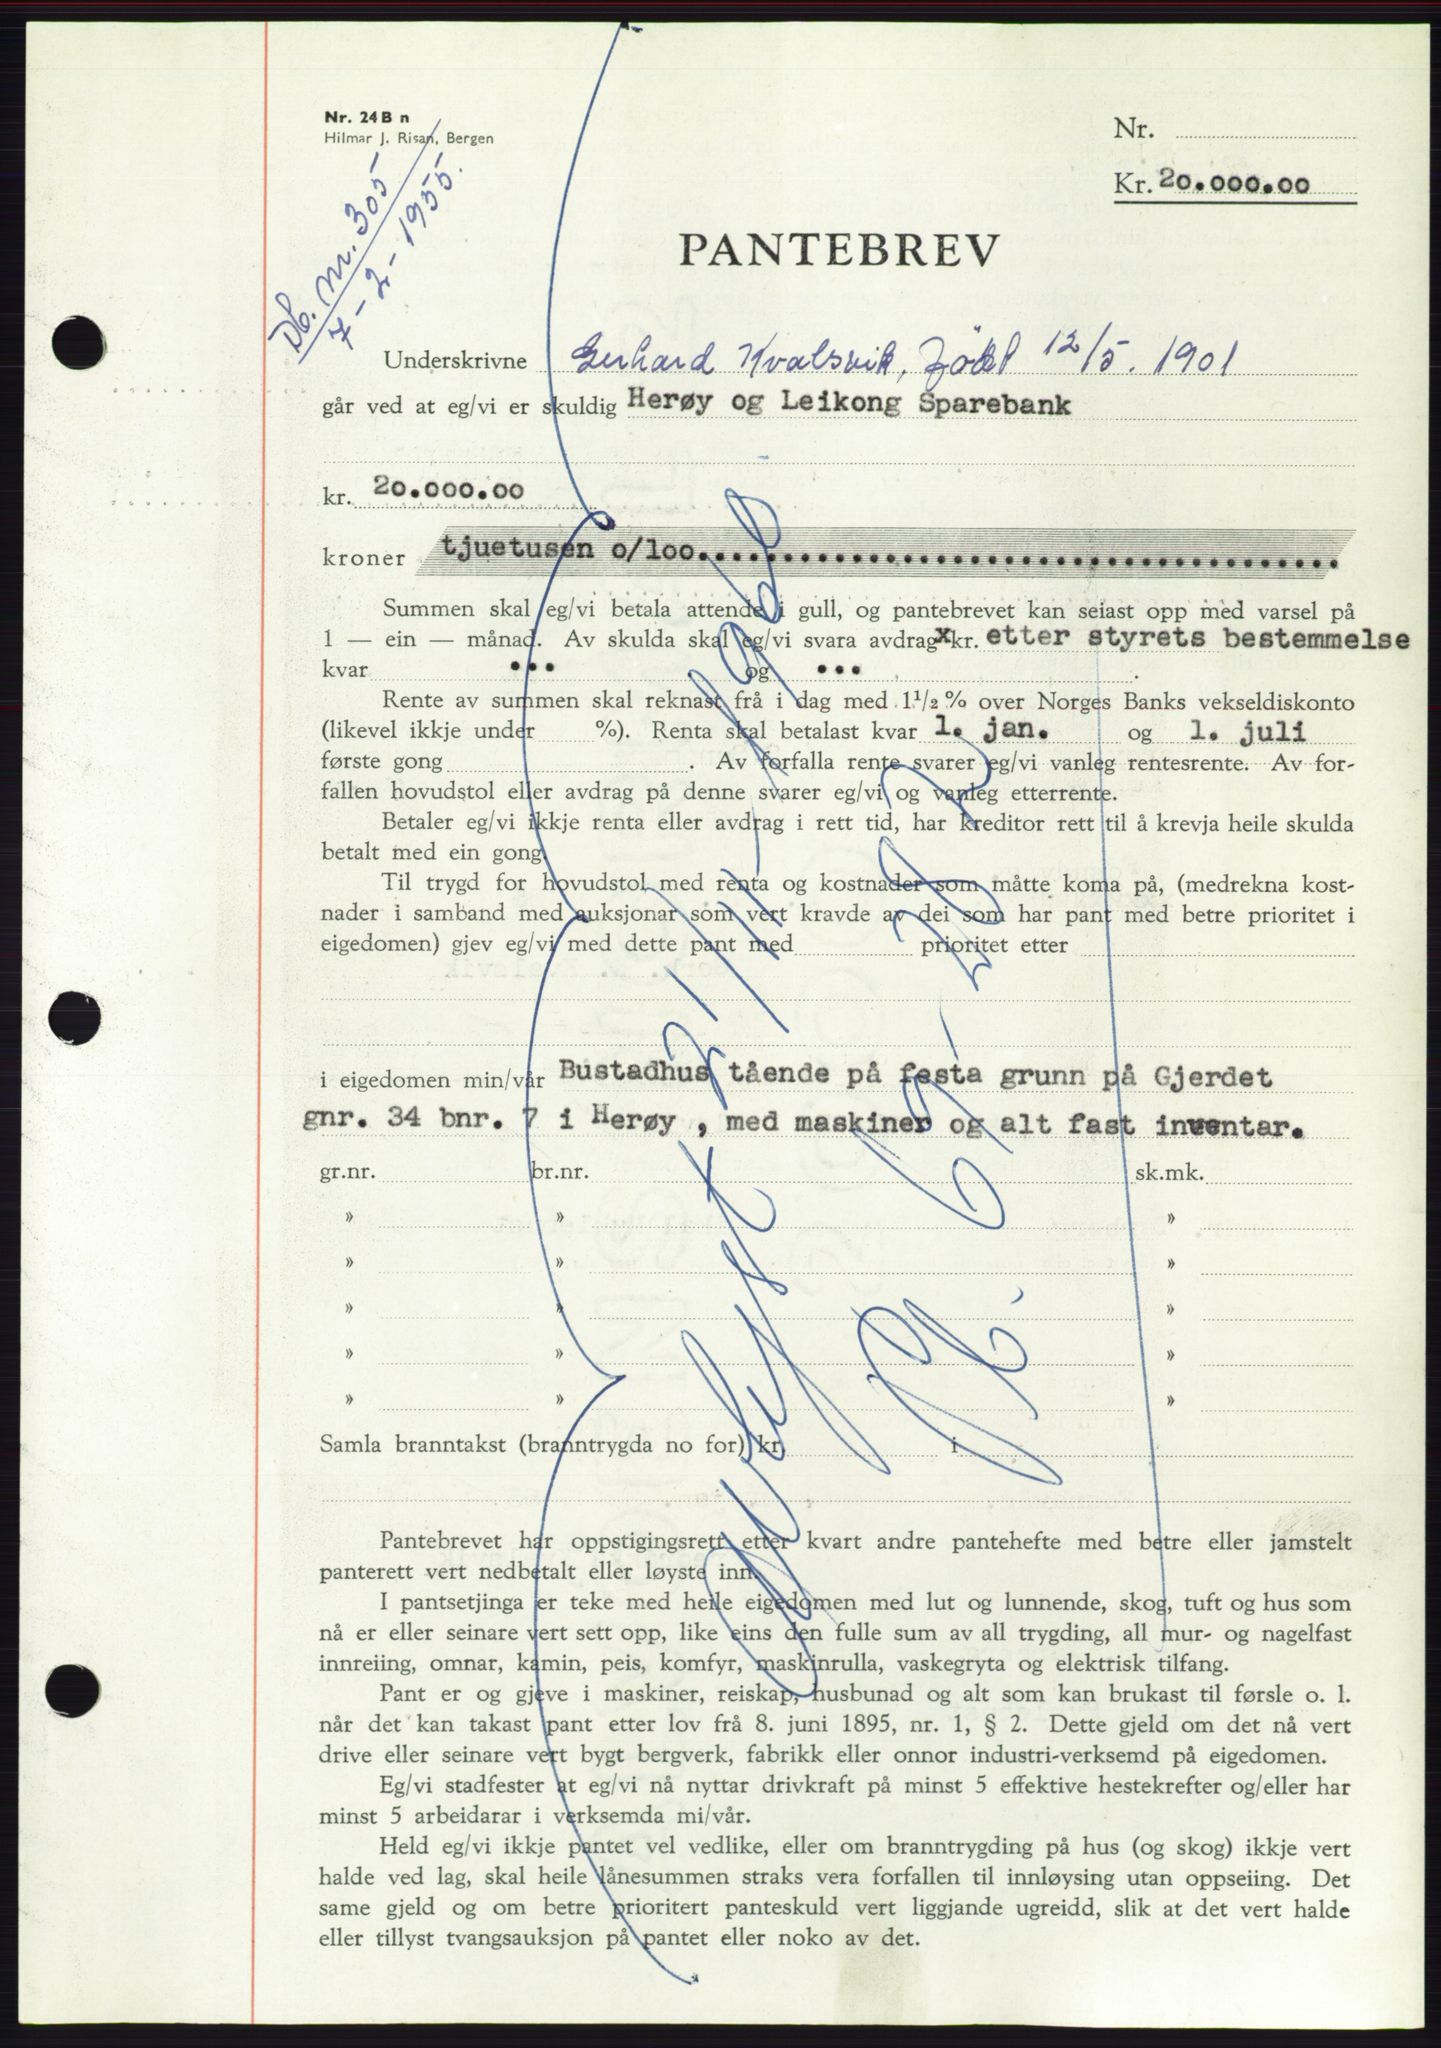 Nr. 24 B n
Hilmar J. Risan, Bergen
Nr.
Kr. 20.000.00
Db. nr. 305
7-2-1955.
PANTEBREV
Underskrivne Gerhard Kvalsvik, født 12/5. 1901
går ved at eg/vi er skuldig Herøy og Leikong Sparebank
kr. 20.000.00
kroner tjuetusen o/loo........................................
Summen skal eg/vi betala attende i gull, og pantebrevet kan seiast opp med varsel på
1 — ein — månad. Av skulda skal eg/vi svara avdrag x kr. etter styrets bestemmelse
kvar ... og ... .
Rente av summen skal reknast frå i dag med 1 1/2 % over Norges Banks vekseldiskonto
(likevel ikkje under %). Renta skal betalast kvar 1. jan. og 1. juli
første gong . Av forfalla rente svarer eg/vi vanleg rentesrente. Av for-
fallen hovudstol eller avdrag på denne svarer eg/vi og vanleg etterrente.
Betaler eg/vi ikkje renta eller avdrag i rett tid, har kreditor rett til å krevja heile skulda
betalt med ein gong.
Til trygd for hovudstol med renta og kostnader som måtte koma på, (medrekna kost-
nader i samband med auksjonar som vert kravde av dei som har pant med betre prioritet i
eigedomen) gjev eg/vi med dette pant med prioritet etter
i eigedomen min/vår Bustadhus tående på festa grunn på Gjerdet
gnr. 34 bnr. 7 i Herøy , med maskiner og alt fast inventar.
gr.nr. br.nr. sk.mk.
» » »
» » »
» » »
» » »
» » »
Samla branntakst (branntrygda no for) kr. i
Avlyst 2/11 1966
69 - 28
Pantebrevet har oppstigingsrett etter kvart andre pantehefte med betre eller jamstelt
panterett vert nedbetalt eller løyste inn.
I pantsetjinga er teke med heile eigedomen med lut og lunnende, skog, tuft og hus som
nå er eller seinare vert sett opp, like eins den fulle sum av all trygding, all mur- og nagelfast
innreiing, omnar, kamin, peis, komfyr, maskinrulla, vaskegryta og elektrisk tilfang.
Pant er og gjeve i maskiner, reiskap, husbunad og alt som kan brukast til førsle o. l.
når det kan takast pant etter lov frå 8. juni 1895, nr. 1, § 2. Dette gjeld om det nå vert
drive eller seinare vert bygt bergverk, fabrikk eller onnor industri-verksemd på eigedomen.
Eg/vi stadfester at eg/vi nå nyttar drivkraft på minst 5 effektive hestekrefter og/eller har
minst 5 arbeidarar i verksemda mi/vår.
Held eg/vi ikkje pantet vel vedlike, eller om branntrygding på hus (og skog) ikkje vert
halde ved lag, skal heile lånesummen straks vera forfallen til innløysing utan oppseiing. Det
same gjeld og om betre prioritert panteskuld vert liggjande ugreidd, slik at det vert halde
eller tillyst tvangsauksjon på pantet eller noko av det.